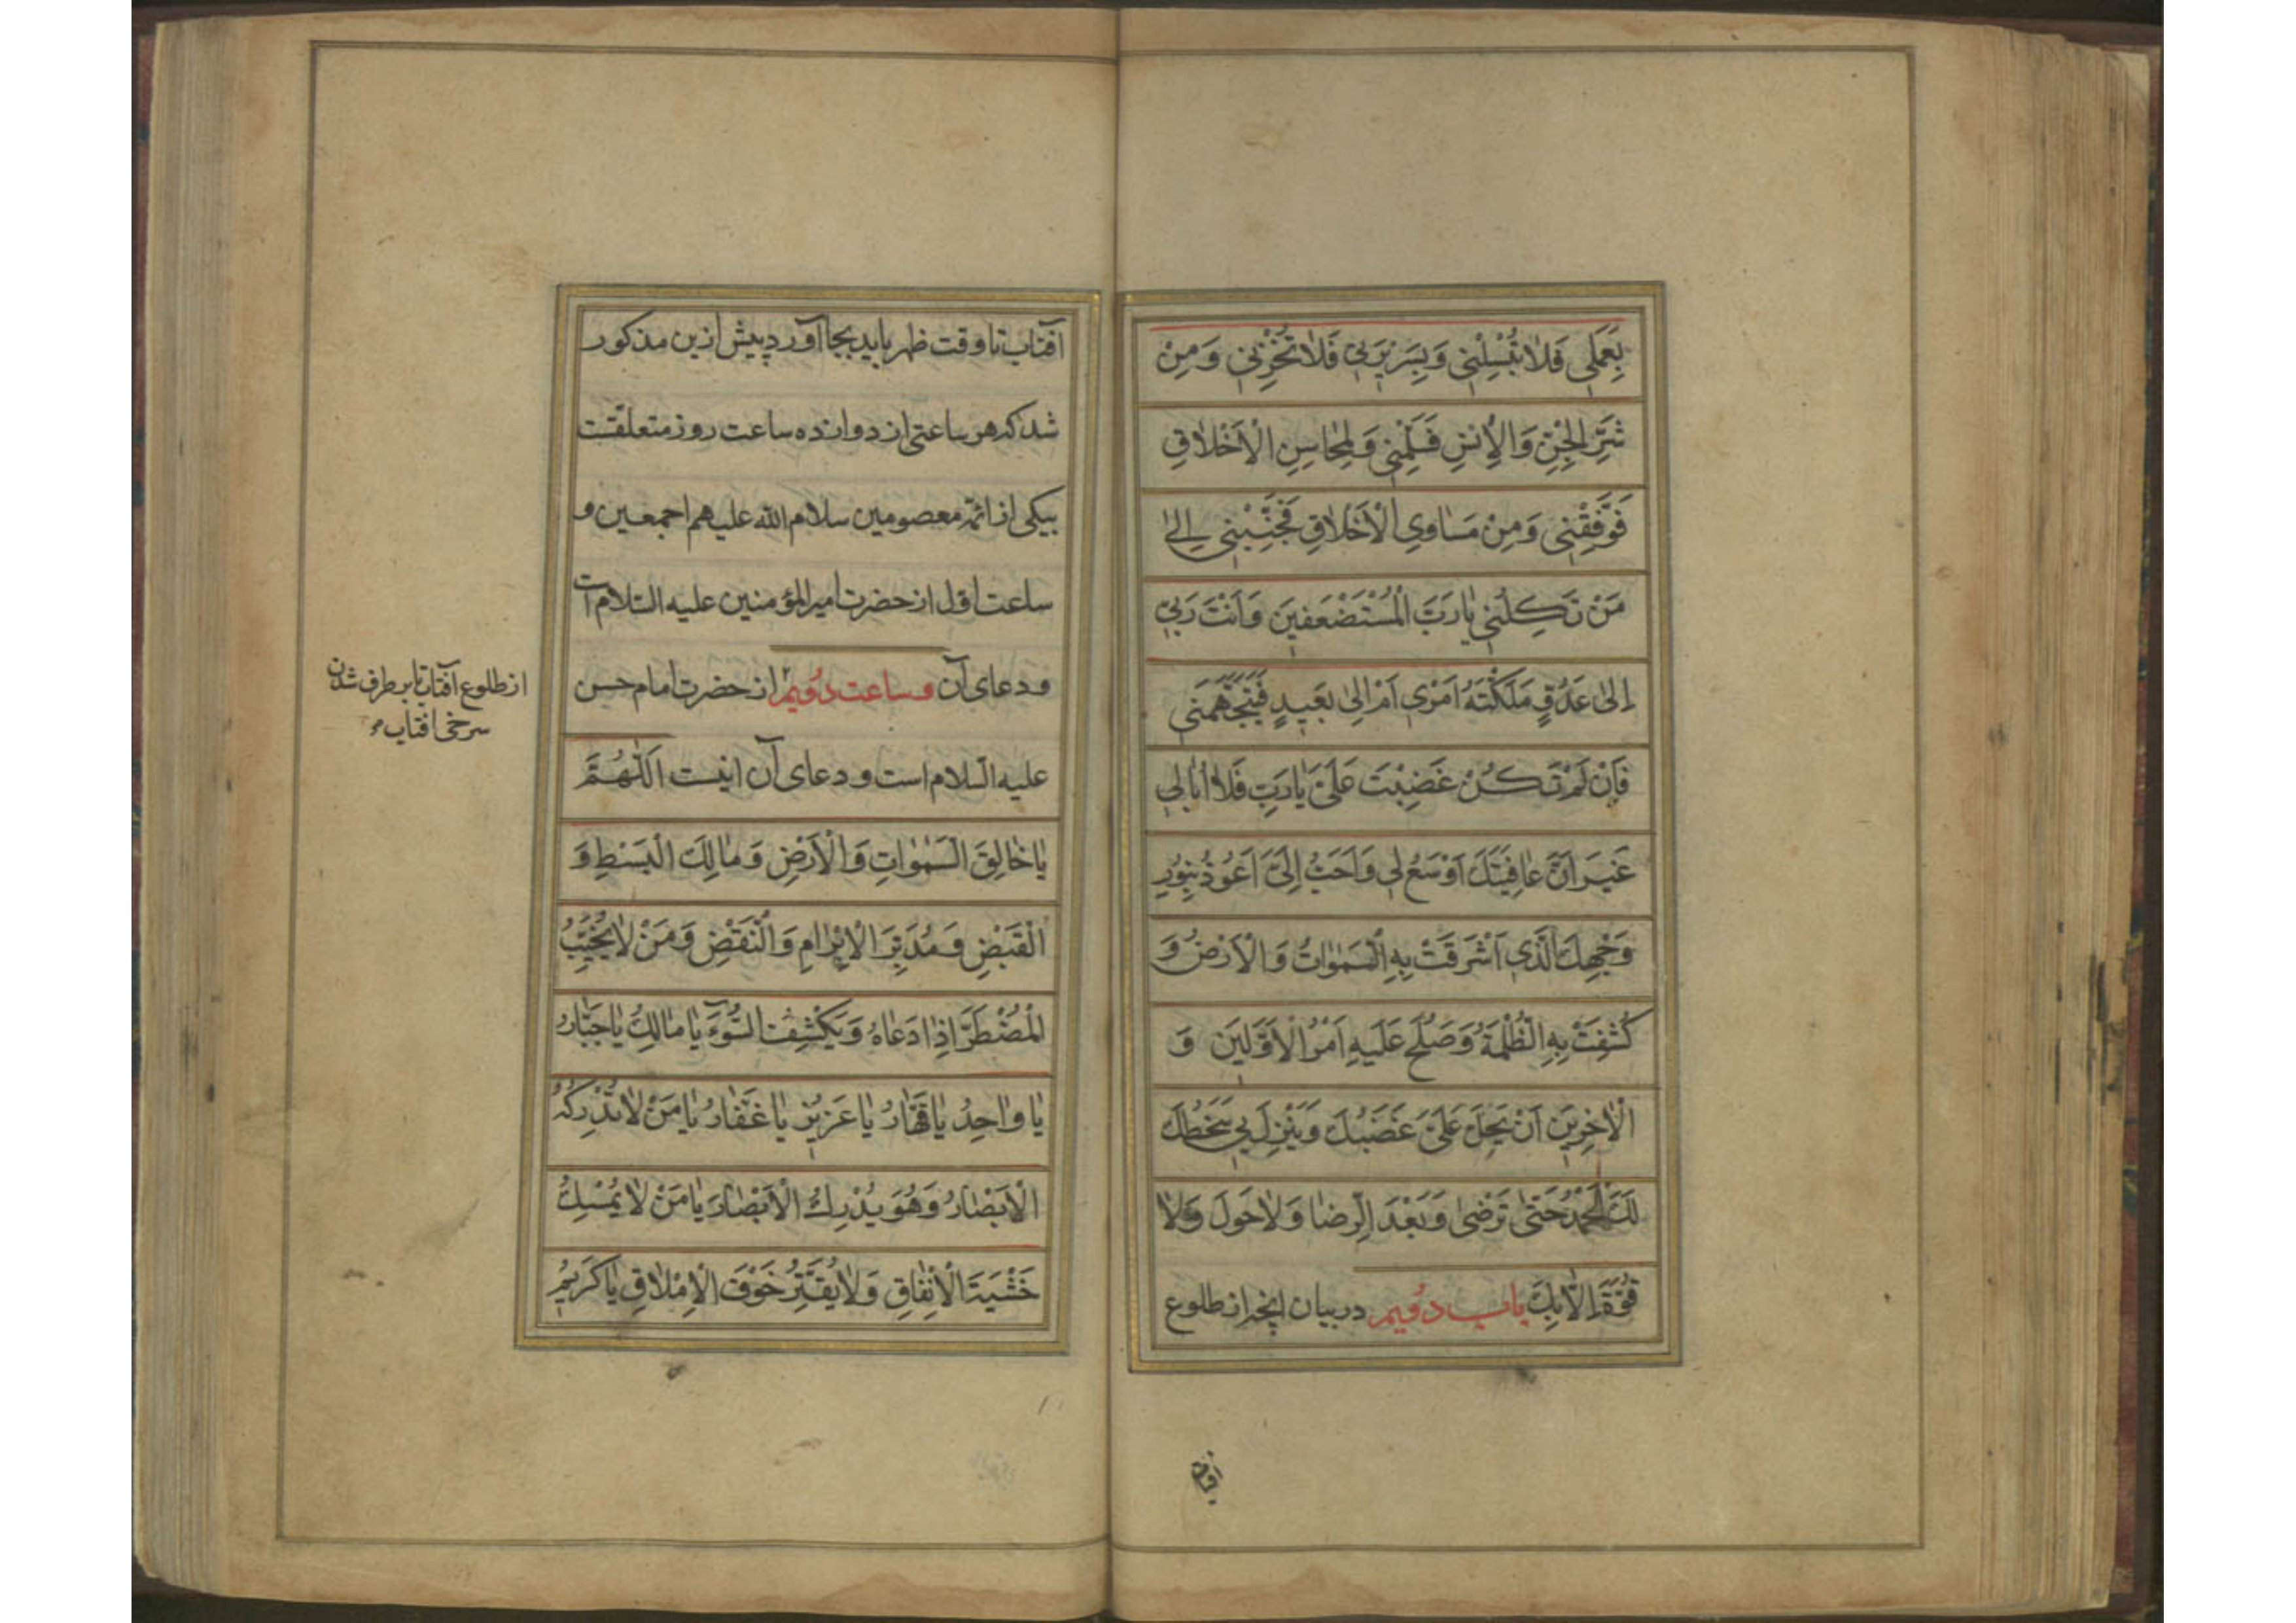 بِعَمَلي فَلا تُبْسِلْني وَبِسَريرَتي فَلا تُخْزِني وَمِنْ
شَرِّ الْجِنِّ وَالْاِنْسِ فَسَلِّمْني وَلِمَحاسِنِ الْاَخْلاقِ
فَوَفِّقْني وَمِنْ مَساوِي الْاَخْلاقِ فَجَنِّبْني اِلى
مَنْ تَكِلُني يا رَبَّ الْمُسْتَضْعَفينَ وَاَنْتَ رَبّي
اِلى عَدُوٍّ مَلَّكْتَهُ اَمْري اَمْ اِلى بَعيدٍ فَيَتَجَهَّمَني
فَاِنْ لَمْ تَكُنْ غَضِبْتَ عَلَيَّ يا رَبِّ فَلا اُبالي
غَيْرَ اَنَّ عافِيَتَكَ اَوْسَعُ لي وَاَحَبُّ اِلَيَّ اَعُوذُ بِنُورِ
وَجْهِكَ الَّذي اَشْرَقَتْ بِهِ السَّمٰواتُ وَالْاَرْضُ وَ
كُشِفَتْ بِهِ الظُّلْمَةُ وَصَلُحَ عَلَيْهِ اَمْرُ الْاَوَّلينَ وَ
الْاٰخِرينَ اَنْ يَحِلَّ عَلَيَّ غَضَبُكَ وَيَنْزِلَ بي سَخَطُكَ
لَكَ الْحَمْدُ حَتّى تَرْضى وَبَعْدَ الرِّضا وَلا حَوْلَ وَلا
قُوَّةَ اِلّا بِكَ باب دُويم در بيان آنچه از طلوع
آفتاب
آفتاب تا وقت ظهر بايد بجا آورد پيش ازين مذكور
شد كه هر ساعتى از دوازده ساعت روز متعلقست
بيكى از ائمهٔ معصومين سلام الله عليهم اجمعين و
ساعت اوّل از حضرت امير المؤمنين عليه السّلام است
و دعاى آن و ساعت دُويم از حضرت امام حسن
عليه السّلام است و دعاى آن اينست اَللّٰهُمَّ
يا خالِقَ السَّمٰواتِ وَالْاَرْضِ وَمالِكَ الْبَسْطِ وَ
الْقَبْضِ وَمُدَبِّرَ الْاِبْرامِ وَالنَّقْضِ وَمَنْ لا يُخَيِّبُ
الْمُضْطَرَّ اِذا دَعاهُ وَيَكْشِفُ السُّوٓءَ يا مالِكُ يا جَبّارُ
يا واحِدُ يا قَهّارُ يا عَزيزُ يا غَفّارُ يا مَنْ لا تُدْرِكُهُ
الْاَبْصارُ وَهُوَ يُدْرِكُ الْاَبْصارَ يا مَنْ لا يُمْسِكُ
خَشْيَةَ الْاِنْفاقِ وَلا يُقَتِّرُ خَوْفَ الْاِمْلاقِ يا كَريمُ
از طلوع آفتاب تا برطرف شدن
سرخى آفتاب